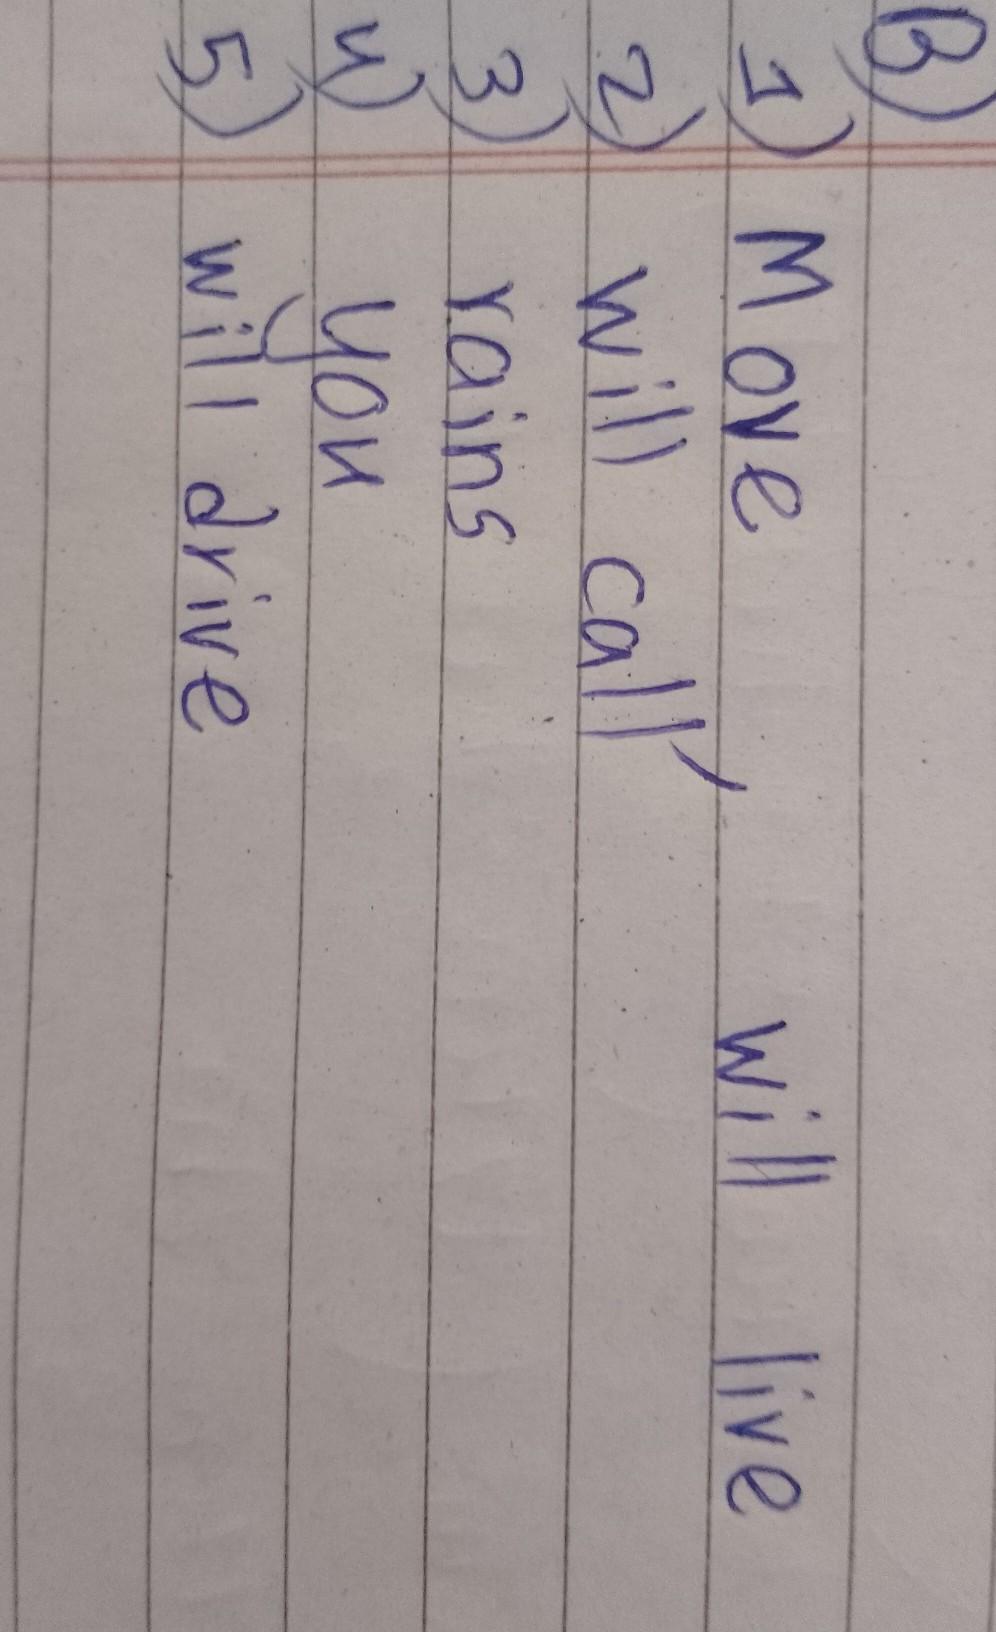 B)
1) Move will live
2) will call,
3) rains
4) you
5) will drive